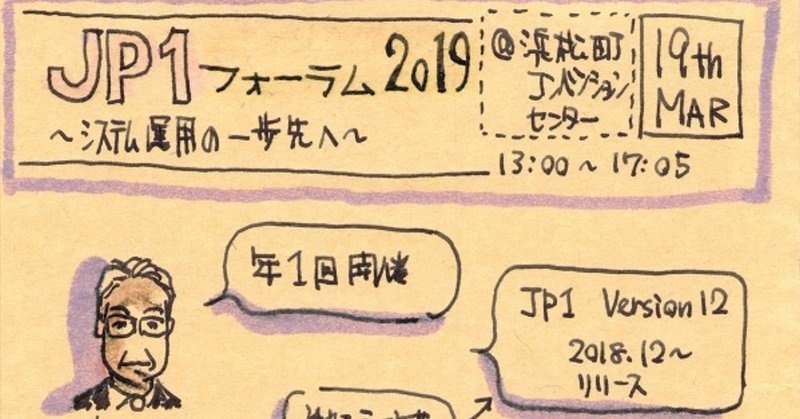 JP1フォーラム2019
〜システム運用の一歩先へ〜
@浜松町
コンベンション
センター
19th
MAR
13:00〜17:05
年1回開催
JP1 Version12
2018.12〜
リリース